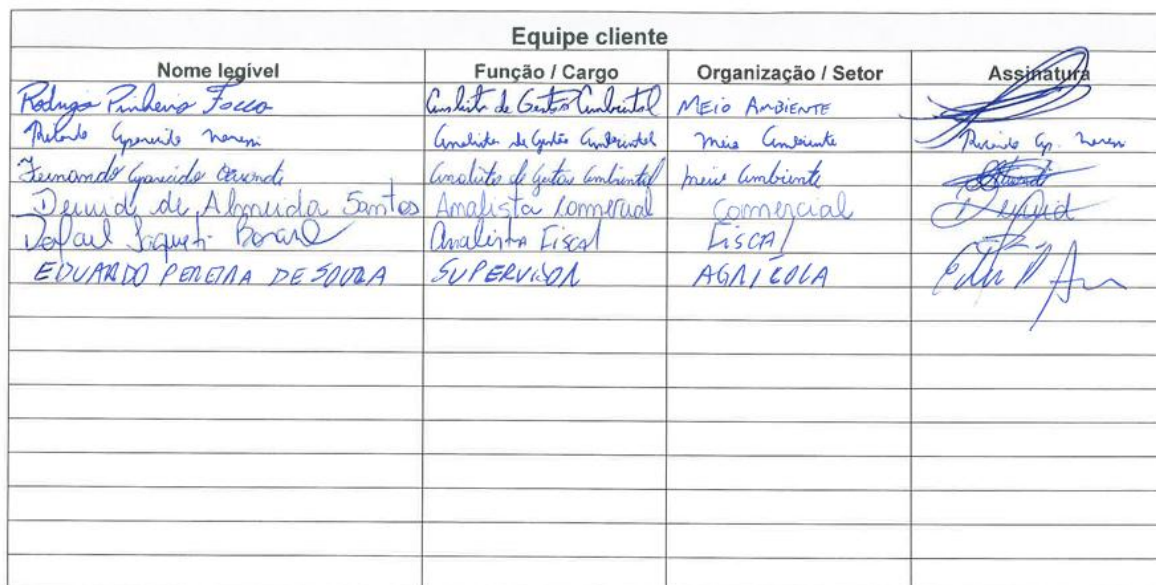 Equipe cliente
Nome legível Função / Cargo Organização / Setor Assinatura
Rodrigo Pinheiro Focco Analista de Gestão Ambiental MEIO AMBIENTE
Ricardo Aparecido Analista de Gestão Ambiental meio Ambiente Ricardo Ap.
Fernando Aparecido Analista de Gestão Ambiental meio Ambiente
Deividi de Almeida Santos Analista Comercial Comercial
Rafael Analista Fiscal FISCAL
EDUARDO PEREIRA DE SOUZA SUPERVISOR AGRÍCOLA